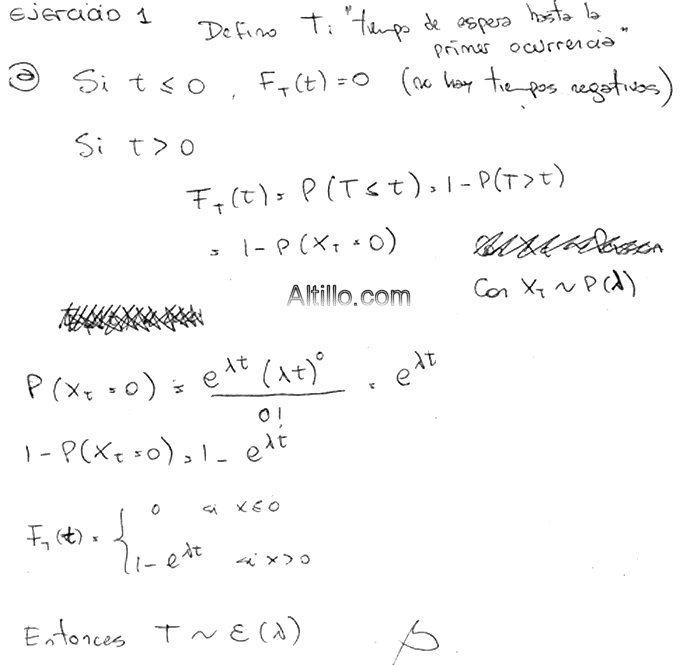 Ejercicio 1
Defino T: "tiempo de espera hasta la
primer ocurrencia"
ⓐ Si t ≤ 0, F_T(t) = 0 (no hay tiempos negativos)
Si t > 0
F_T(t) = P(T ≤ t) = 1 - P(T > t)
= 1 - P(X_T = 0)
Con X_T ~ P(λ)
Altillo.com
P(X_t = 0) = e^{λt} (λt)^0 / 0! = e^{λt}
1 - P(X_t = 0) = 1 - e^{λt}
F_T(t) = { 0 si x ≤ 0
1 - e^{λt} si x > 0
Entonces T ~ ε(λ)